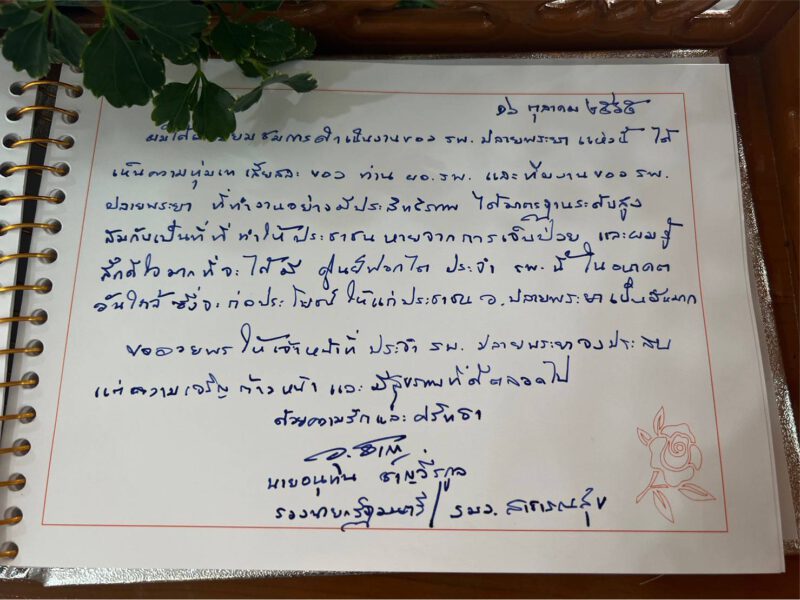 ๑๖ ตุลาคม ๒๕๖๕
ผมได้มาเยี่ยมชมการดำเนินงานของ รพ. ปลายพระยา แห่งนี้ ได้
เห็นความทุ่มเท เสียสละ ของ ท่าน ผอ. รพ. และทีมงานของ รพ.
ปลายพระยา ที่ทำงานอย่างมีประสิทธิภาพ ได้มาตรฐานระดับสูง
สมกับเป็นที่ที่ ทำให้ประชาชน หายจากการเจ็บป่วย และผมรู้
สึกดีใจมากที่จะได้มี ศูนย์ฟอกไต ประจำ รพ. นี้ ในอนาคต
อันใกล้ ซึ่งจะ ก่อประโยชน์ ให้แก่ประชาชน อ. ปลายพระยา เป็นอันมาก
ขออวยพร ให้เจ้าหน้าที่ ประจำ รพ. ปลายพระยา จงประสบ
แต่ความเจริญ ก้าวหน้า และ มีสุขภาพที่ดีตลอดไป
ด้วยความรักและศรัทธา
นายอนุทิน ชาญวีรกูล
รองนายกรัฐมนตรี / รมว. สาธารณสุข